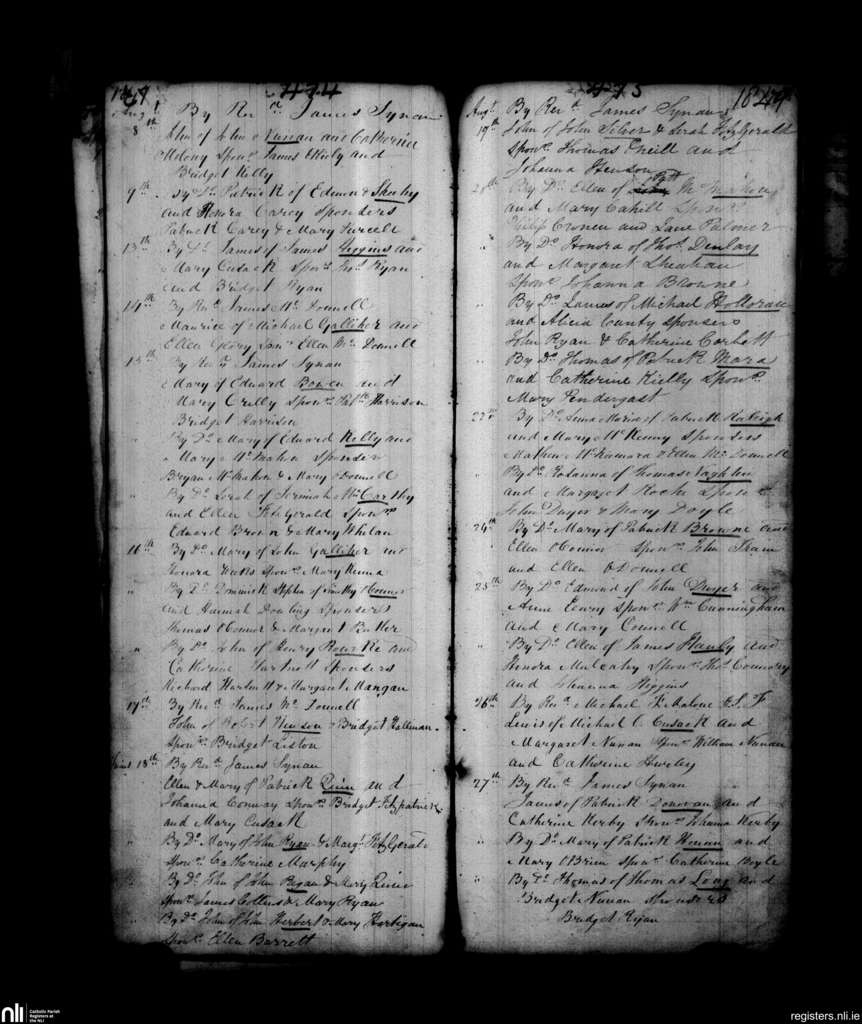 1849 474
Augt By Revd James Synan
8th John of John Nunan and Catherine
Molony Sponrs James Kiely and
Bridget Kelly
9th By Do Patrick of Edmond Sheehy
and Honora Carey Sponsors
Patrick Carey & Mary Purcell
13th By Do James of James Higgins and
Mary Cusack Sponrs Thos Ryan
and Bridget Ryan
14th By Revd James Mc Donnell
Maurice of Michael Galliher and
Ellen Glory Sponr Ellen Mc Donnell
15th By Revd James Synan
Mary of Edward Bowen and
Mary Crilly Sponrs Patk Harrison
Bridget Harrison
" By Do Mary of Edward Kelly and
Mary McMahon Sponsors
Bryan McMahon & Mary ODonnell
" By Do Sarah of Jeremiah McCarthy
and Ellen FitzGerald Sponrs
Edward Brown & Mary Whelan
16th By Do Mary of John Galliher and
Honora Watts Sponr Mary Kenna
" By Do Dominick Stephen of Timothy OConnor
and Hannah Dowling Sponsors
Thomas OConnor & Margaret Butler
" By Do John of Henry Rourke and
Catherine Hartnett Sponsors
Richard Hartnett & Margaret Mangan
17th By Revd James Mc Donnell
John of Robert Hewson & Bridget Hallinan
Sponr Bridget Liston
18th By Revd James Synan
Ellen & Mary of Patrick Quin and
Johanna Conway Sponrs Bridget Fitzpatrick
and Mary Cusack
" By Do Mary of John Ryan & Margt FitzGerald
Sponr Catherine Murphy
" By Do John of John Regan & Mary Quin
Sponrs James Collins & Mary Ryan
" By Do John of John Herbert & Mary Hartigan
Sponr Ellen Barrett
475 1849
Augt By Revd James Synan
19th John of John Silver & Sarah FitzGerald
Sponrs Thomas Oneill and
Johanna Henson
By Do Ellen of Patt Mc Mahon
and Mary Cahill Sponrs
Philip Cronen and Jane Palmer
" By Do Honora of Thos
and Margaret Sheehan
Sponr Johanna Browne
" By Do James of Michael Holloran
and Alicia County Sponsors
John Ryan & Catherine Corbett
" By Do Thomas of Patrick Mara
and Catherine Kielly Sponr
Mary Pendergast
22nd By Do Anna Maria of Patrick Raleigh
and Mary McKenny Sponsors
Mathew McNamara & Ellen Mc Donnell
" By Do Rosanna of Thomas Naghten
and Margaret Roche Sponrs
John Dwyer & Mary Doyle
24th By Do Mary of Patrick Browne and
Ellen OConnor Sponrs John Shaw
and Ellen ODonnell
25th By Do Edmond of John Dwyer and
Anne Eenry Sponrs Wm Cunningham
and Mary Connell
" By Do Ellen of James Hanly and
Honora Mulcahy Sponrs Thos Conway
and Johanna Higgins
26th By Revd Michael Malone
Lewis of Michael C Cusack and
Margaret Nunan Sponrs William Nunan
and Catherine Hurley
27th By Revd James Synan
James of Patrick Donovan and
Catherine Kerby Sponr Johanna Kerby
" By Do Mary of Patrick Honan and
Mary OBrien Sponr Catherine Boyle
" By Do Thomas of Thomas Long and
Bridget Nunan Sponsors
Bridget Ryan
nli Catholic Parish
Registers at
the NLI
registers.nli.ie